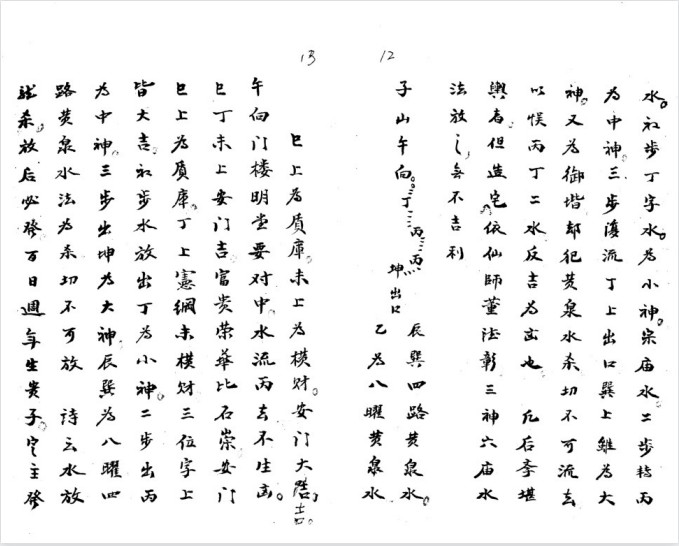 12
水。初步丁字水。为小神。宗庙水二步转丙
为中神三步復流丁上出口巽上雖为大
神。又为御堦却犯黄泉水杀切不可流去
以悮丙丁二水反吉为凶也 凡后李堪
舆者但造宅。依仙師董德彰三神六庙水
法放之。無不吉利
子山午向。丁丙丙
坤出口
辰巽四路黄泉水。
乙为八曜黄泉水
13
巳上为质庫。未上为横财。安门大吉。
午向门楼明堂要对中。水流丙去不生凶。
巳丁未上安门吉富贵荣華比石崇安门
巳上为质庫。丁上憲綱未横财三位字上
皆大吉。初步水放出丁为小神。二步出丙
为中神。三步出坤为大神。辰巽为八曜四
路黄泉水法为杀切不可放 诗云水放
杀。放后必發万日週年生贵子。定主發